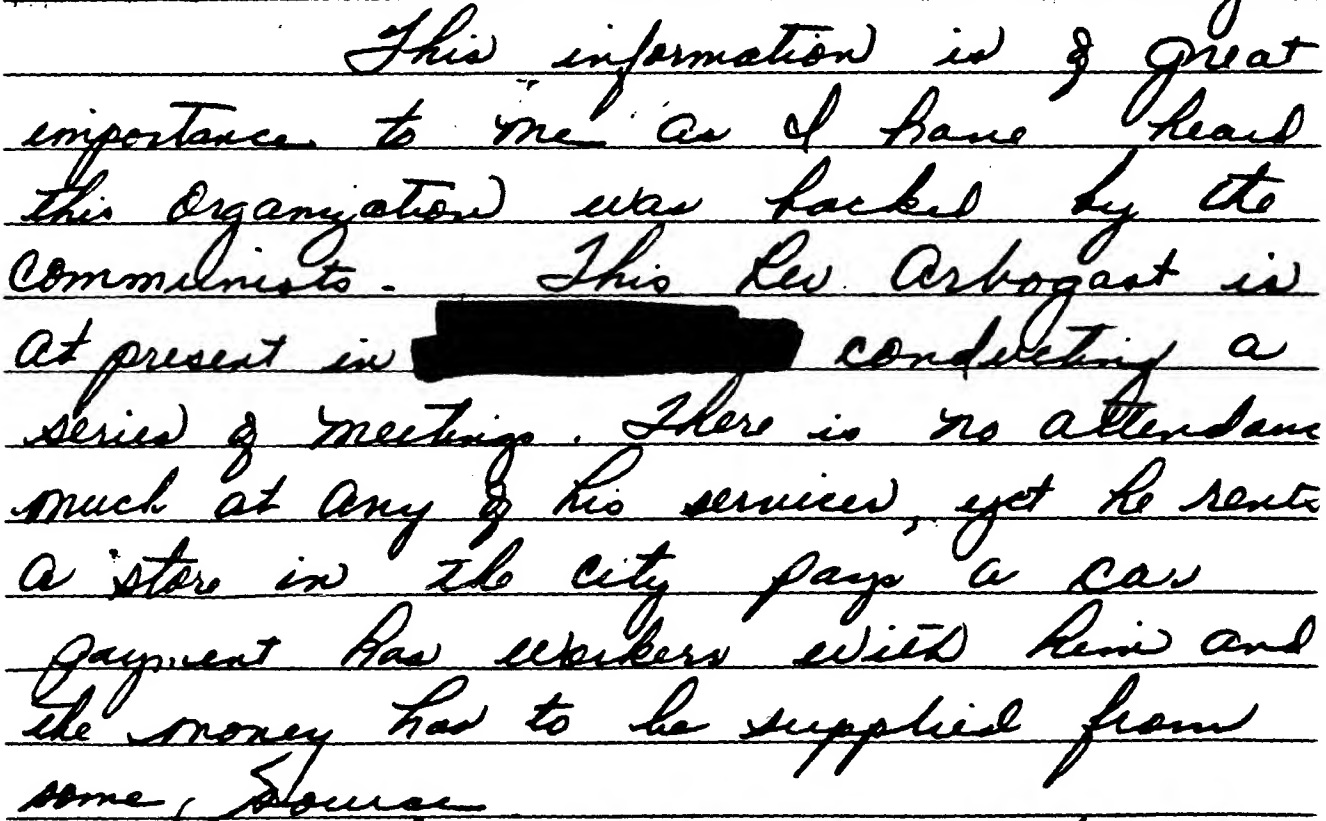 This information is of great
importance to me as I have heard
this Organization was backed by the
Communists. This Rev. Arbogast is
at present in conducting a
series of meetings. There is no attendanc
much at any of his services, yet he rents
a store in the city pays a car
payment has workers with him and
the money has to be supplied from
some, Source